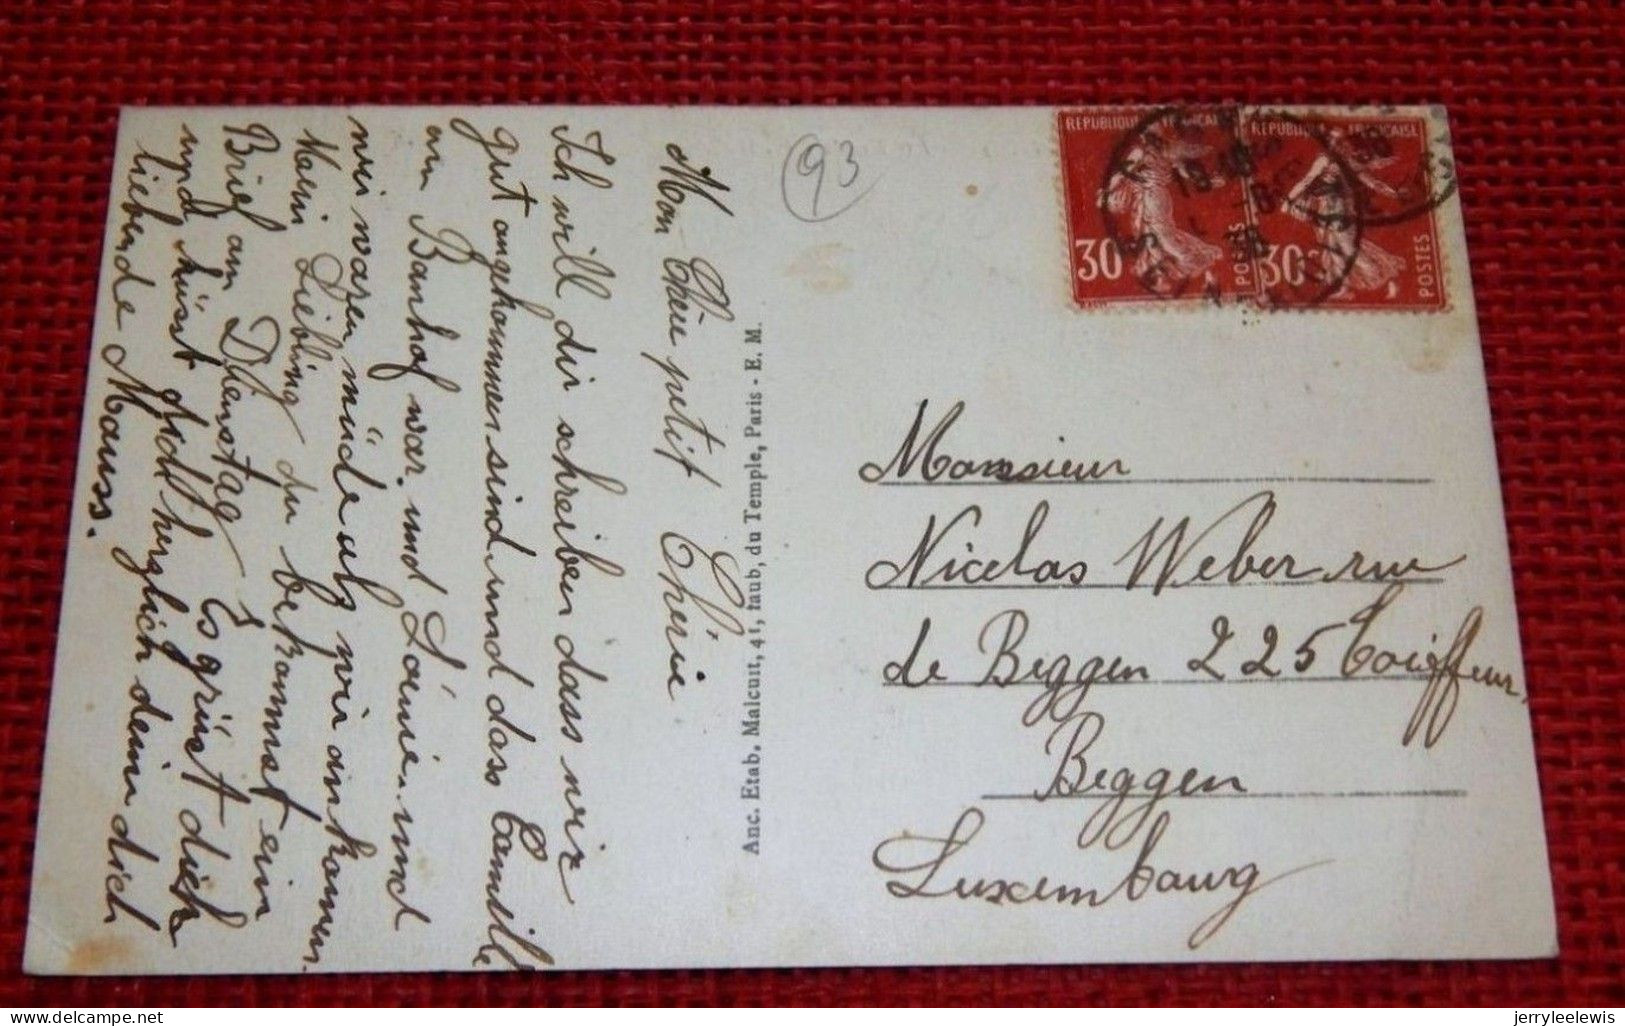 Mon Chèu petit Chérie
Ich will dir schreiben dass wir
gut angekommen sind und dass Camille
am Banhof war. und Louie. und
wir waren müde als wir ankamen.
Mein Liebling du bekommst ein
Brief am Dienstag Es grüst dich
und küsst dich herzlich dein dich
liebende Mauss.
93
Anc. Etab. Malcuit, 41, faub, du Temple, Paris - E. M.
REPUBLIQUE FRANCAISE
30c POSTES
REPUBLIQUE FRANCAISE
30c POSTES
Monsieur
Nicolas Weber rue
de Beggen 225 Coiffeur
Beggen
Luxembourg
jerryleelewis
delcampe.net